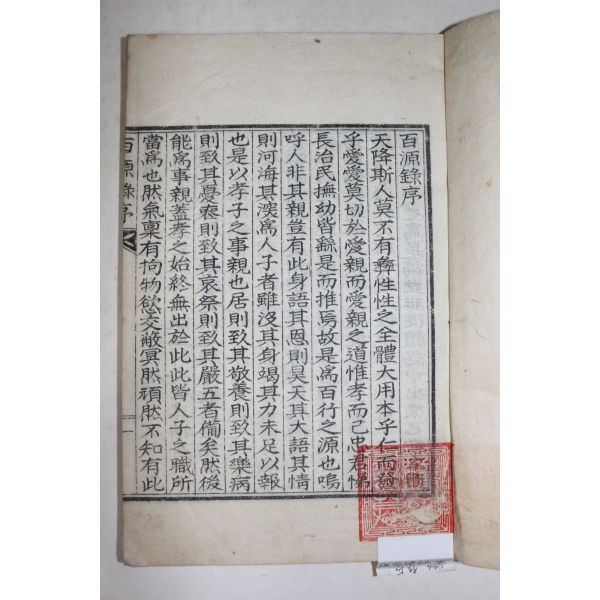 百源錄序
天降斯人莫不有彝性性之全體大用本乎仁而發
乎愛愛莫切於愛親而愛親之道惟孝而已忠君悌
長治民撫幼皆繇是而推焉故是爲百行之源也嗚
呼人非其親豈有此身語其恩則昊天其大語其情
則河海其深爲人子者雖沒其身竭其力未足以報
也是以孝子之事親也居則致其敬養則致其樂病
則致其憂喪則致其哀祭則致其嚴五者備矣然後
能爲事親蓋孝之始終無出於此此皆人子之職所
當爲也然氣稟有拘物慾交蔽冥然頑然不知有此
百源錄序
一